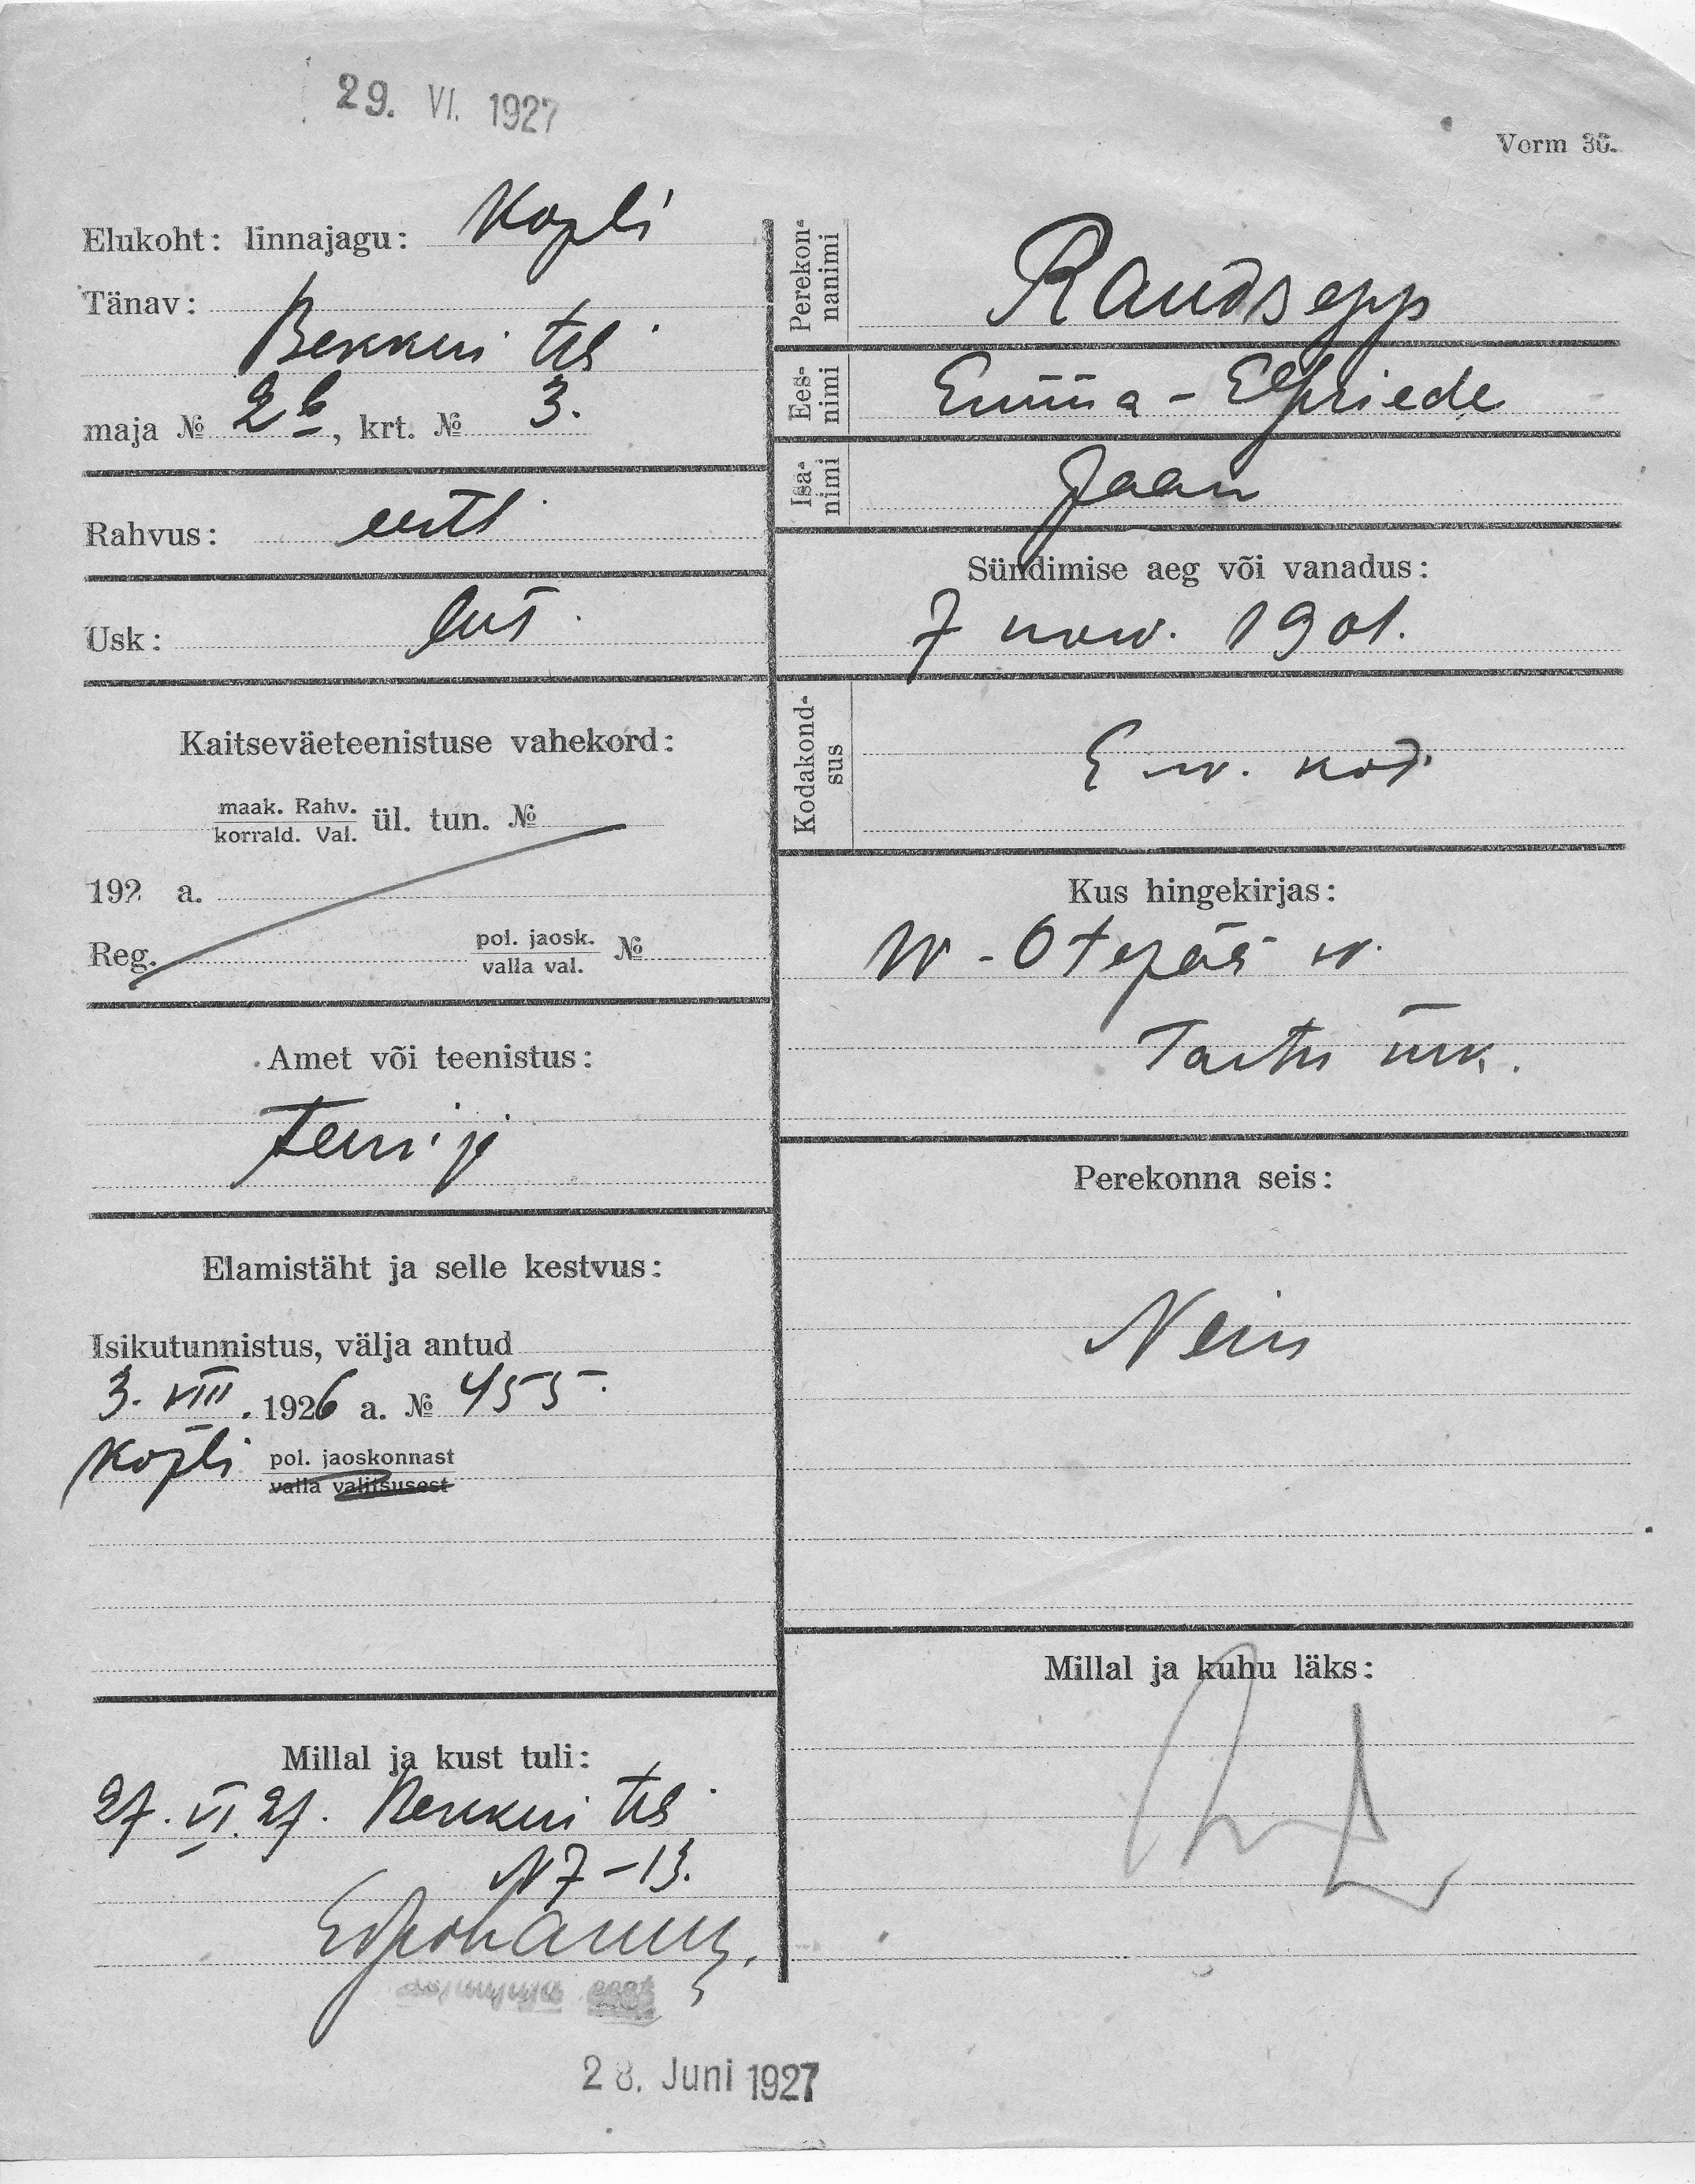 29. VI. 1927
Vorm 30.
Elukoht: linnajagu: Kopli
Tänav:
Bekkeri teh
maja № 2b, krt. № 3.
Rahvus: eesti
Usk: lut.
Kaitseväeteenistuse vahekord:
maak. Rahv.
korrald. Val. ül. tun. №
192 a.
Reg. pol. jaosk.
valla val. №
Amet või teenistus:
Tenija
Elamistäht ja selle kestvus:
Isikutunnistus, välja antud
3. VIII. 1926 a. № 455.
Kopli pol. jaoskonnast
valla valitsusest
Millal ja kust tuli:
27. VI. 27. Bekkeri teh
N 7-13.
28. Juni 1927
Perekon-
nanimi
Raudsepp
Ees-
nimi
Emma-Elfriede
Isa-
nimi
Jaan
Sündimise aeg või vanadus:
7 now. 1901.
Kodakond-
sus
E w. kod.
Kus hingekirjas:
W-Otepää w.
Tartu mk.
Perekonna seis:
Neiu
Millal ja kuhu läks: